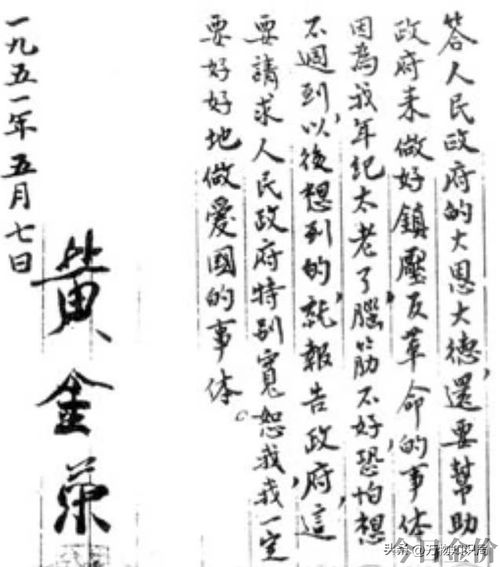 答人民政府的大恩大德，還要幫助
政府来做好鎮壓反革命的事体
因為我年纪太老了，腦筋不好，恐怕想
不週到，以後想到的，就報告政府，這，
要請求人民政府特别寬恕我，我一定
要好好地做愛國的事体。
一九五一年五月七日
黄金荣
头条@万物知识局
今日金价